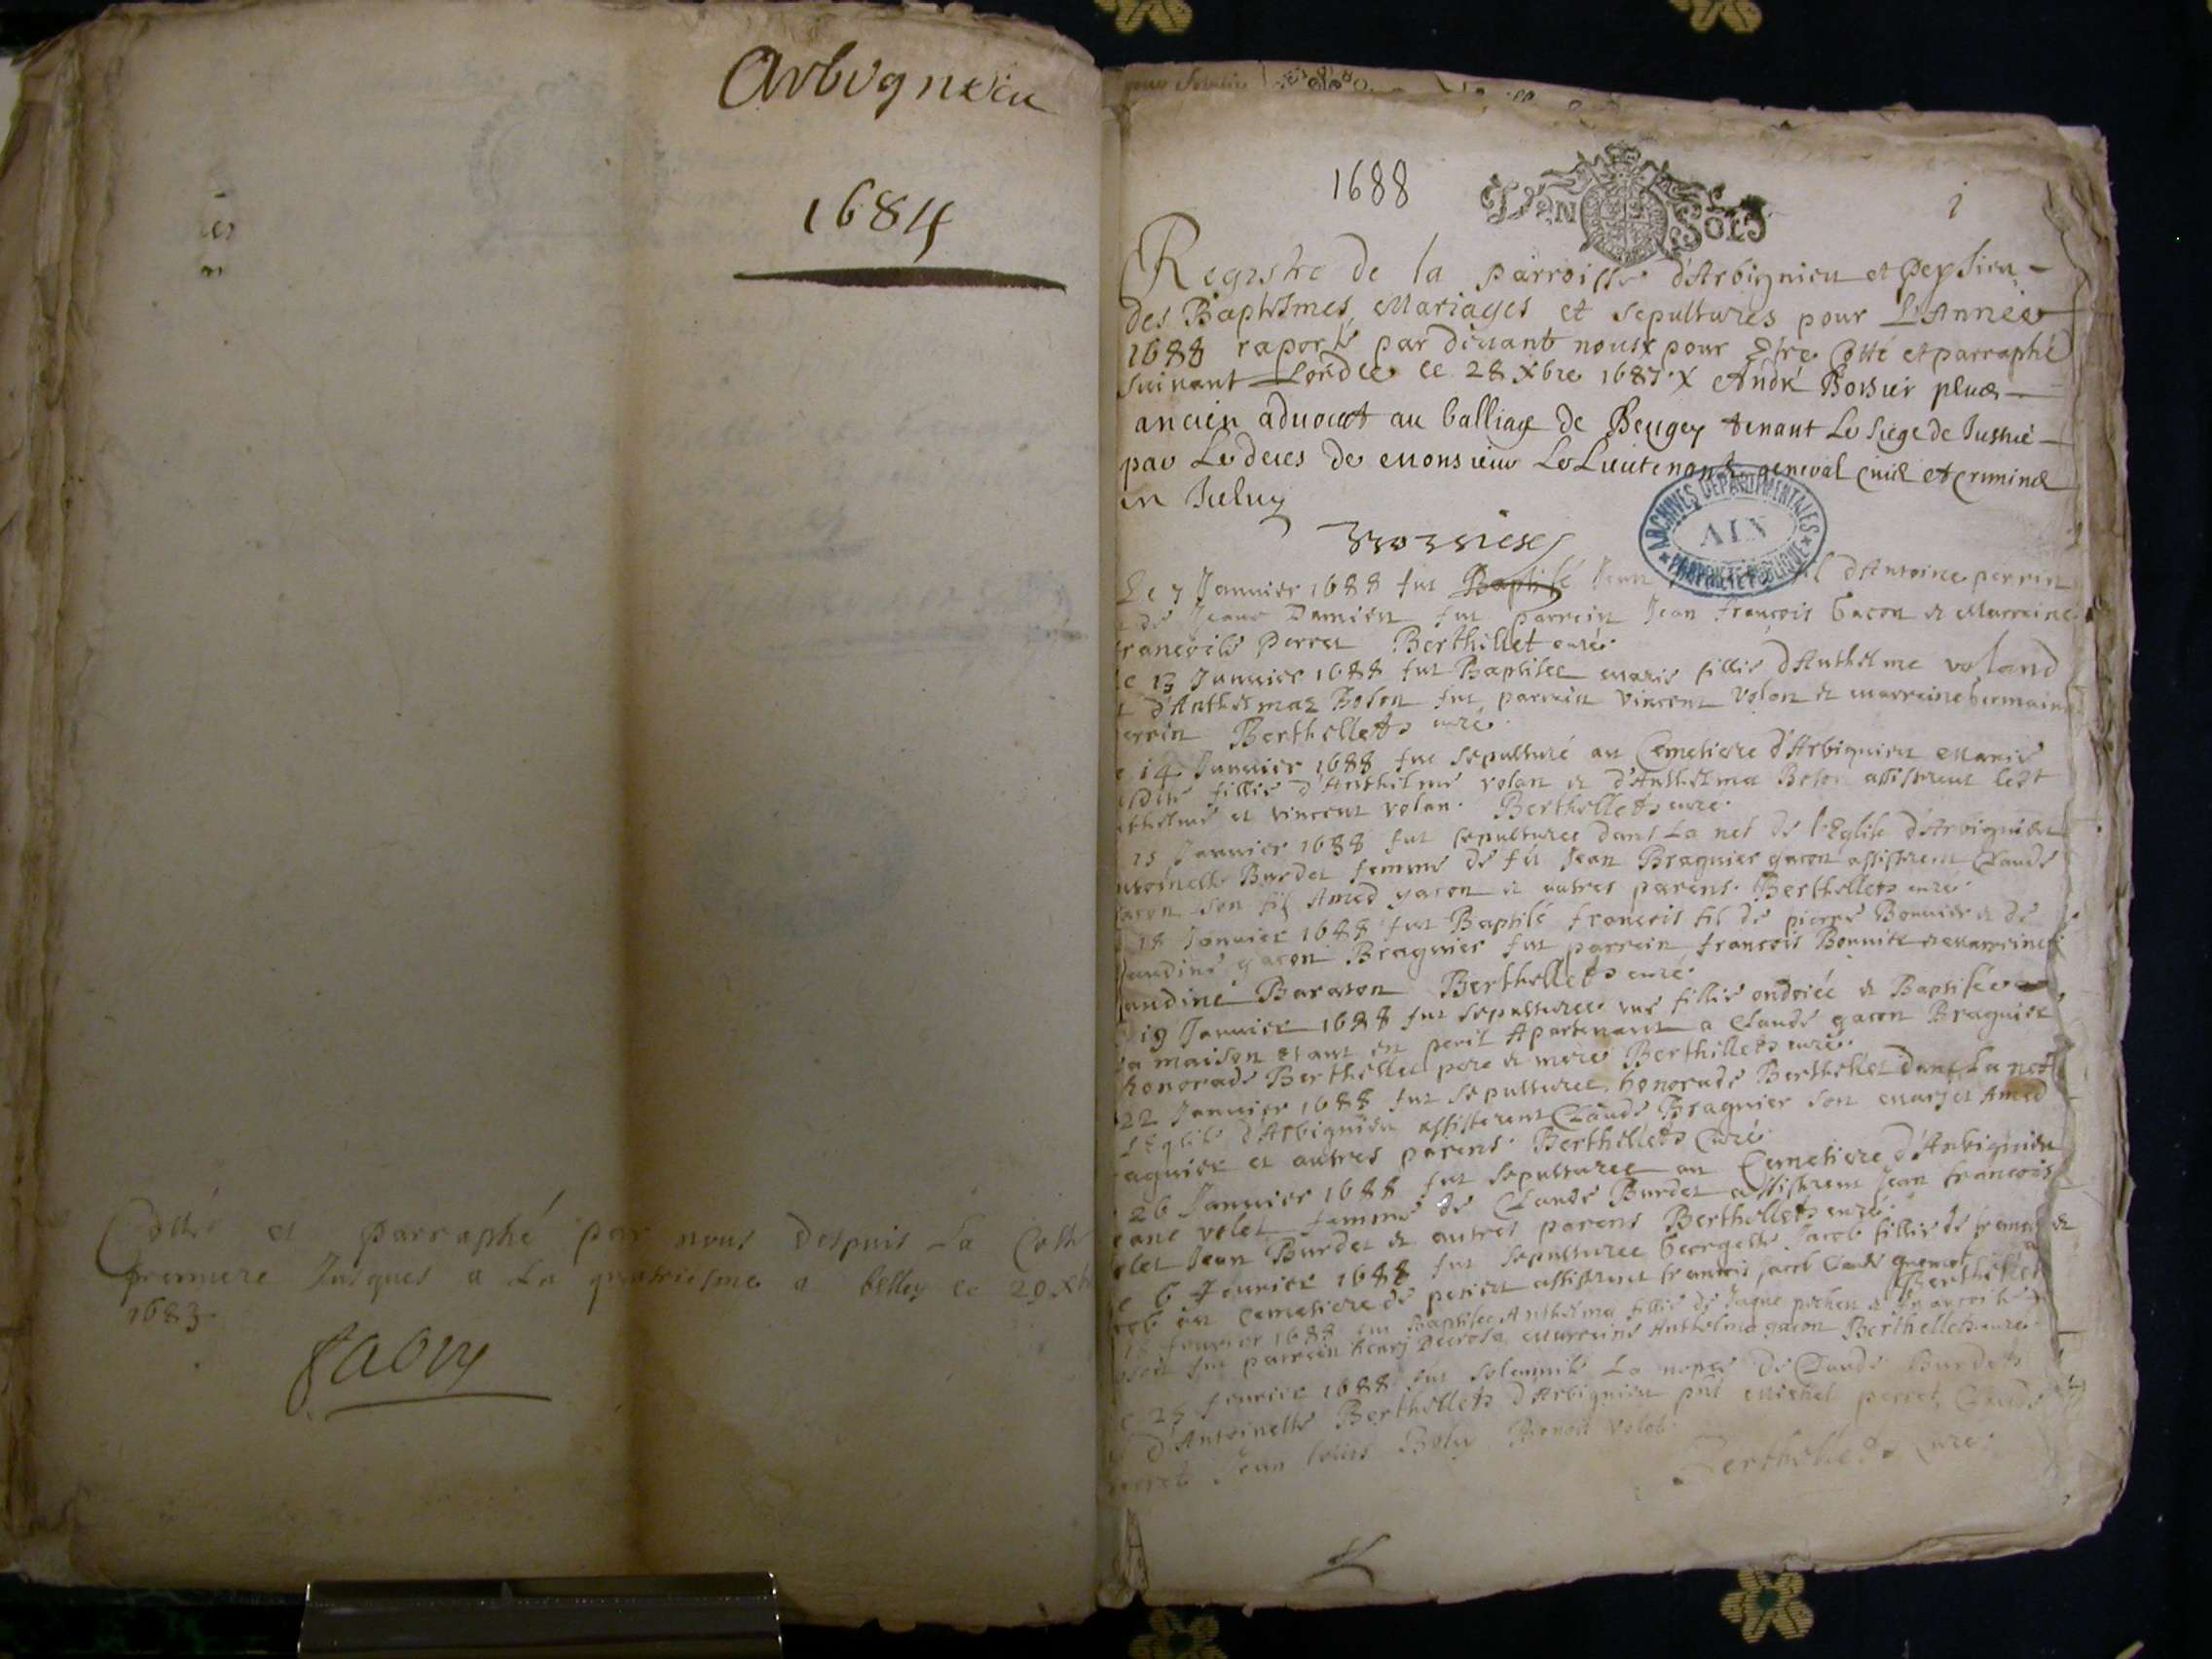 Arbignieu
1684
Cotté et parraphé par nous despuis La Cotte
premiere Jusques a La quatriesme a belley ce 29 xbre
1683
Fabry
1688
DEN SOLS
1
Registre de la parroisse d'Arbignieu et Peysieu
des Baptesmes, Mariages et sepultures pour L'Année
1688 raporté par devant nous pour Estre Cotté et parraphé
suivant Lordce ce 28 xbre 1687 André Bossier plus
ancien advocat au balliage de Beugey tenant Le Siege de Justice
par Le deces de Monsieur Le Lieutenant general Civil et Criminel
ARCHIVES DEPARTEMENTALES
AIN
PROPRIETE PUBLIQUE
Le 7 Janvier 1688 fut Baptisé Jean fil d'Antoine perrin
de Jeane Damien fut parrein Jean francois Gacon et Marreine
francoise Perret Berthellet curé
le 13 Janvier 1688 fut Baptisee Marie fillie d'Anthelme voland
d'Anthelmaz Boson fut parrein Vincent Volan et marreine Germaine
perrin Berthellet curé
14 Janvier 1688 fut sepulturé au Cemetiere d'Arbignieu Marie
fillie d'Anthelme volan et d'Anthelma Boson assisterent ledt
Anthelme et vincent volan. Berthellet curé.
15 Janvier 1688 fut sepulturee dans La nef de l'Eglise d'Arbignieu
Antoinette Burdet femme de fu Jean Bragnier gacon assisterent Claude
gacon son fil Amed gacon et autres parens. Berthellet curé
18 Janvier 1688 fut Baptisé francois fil de pierre Bonnier et de
Claudine gacon Bragnier fut parrein francois Bonnier et marreine
Claudine Barason Berthellet curé
19 Janvier 1688 fut sepulturee une fillie ondoiée et Baptisée
la maison etant en peril Apartenant a Claude gacon Bragnier
honorade Berthellet pere et mere Berthellet curé.
22 Janvier 1688 fut sepulturee honorade Berthellet dans La nef
l'Eglise d'Arbignieu assisterent Claude Bragnier son mary et Amed
Bragnier et autres parens Berthellet Curé
26 Janvier 1688 fut sepulturee au Cemetiere d'Arbignieu
Jeane volet femme de Claude Burdet assisterent Jean francois
volet Jean Burdet et autres parens Berthellet curé
6 fevrier 1688 fut sepulturee Georgette Jacob fillie de francois
Jacob au cemetiere de assisterent francois Jacob Claude
Berthellet
fevrier 1688 fut Baptisee Anthelma fillie de
fut parrein henry marreine Anthelma gacon Berthellet curé
25 fevrier 1688 fut solemnisé La nopce de Claude Burdet
d'Antoinette Berthellet d'Arbignieu pnt Michel perret, Claude
perret Jean Louis Benoit volet
Berthellet Curé